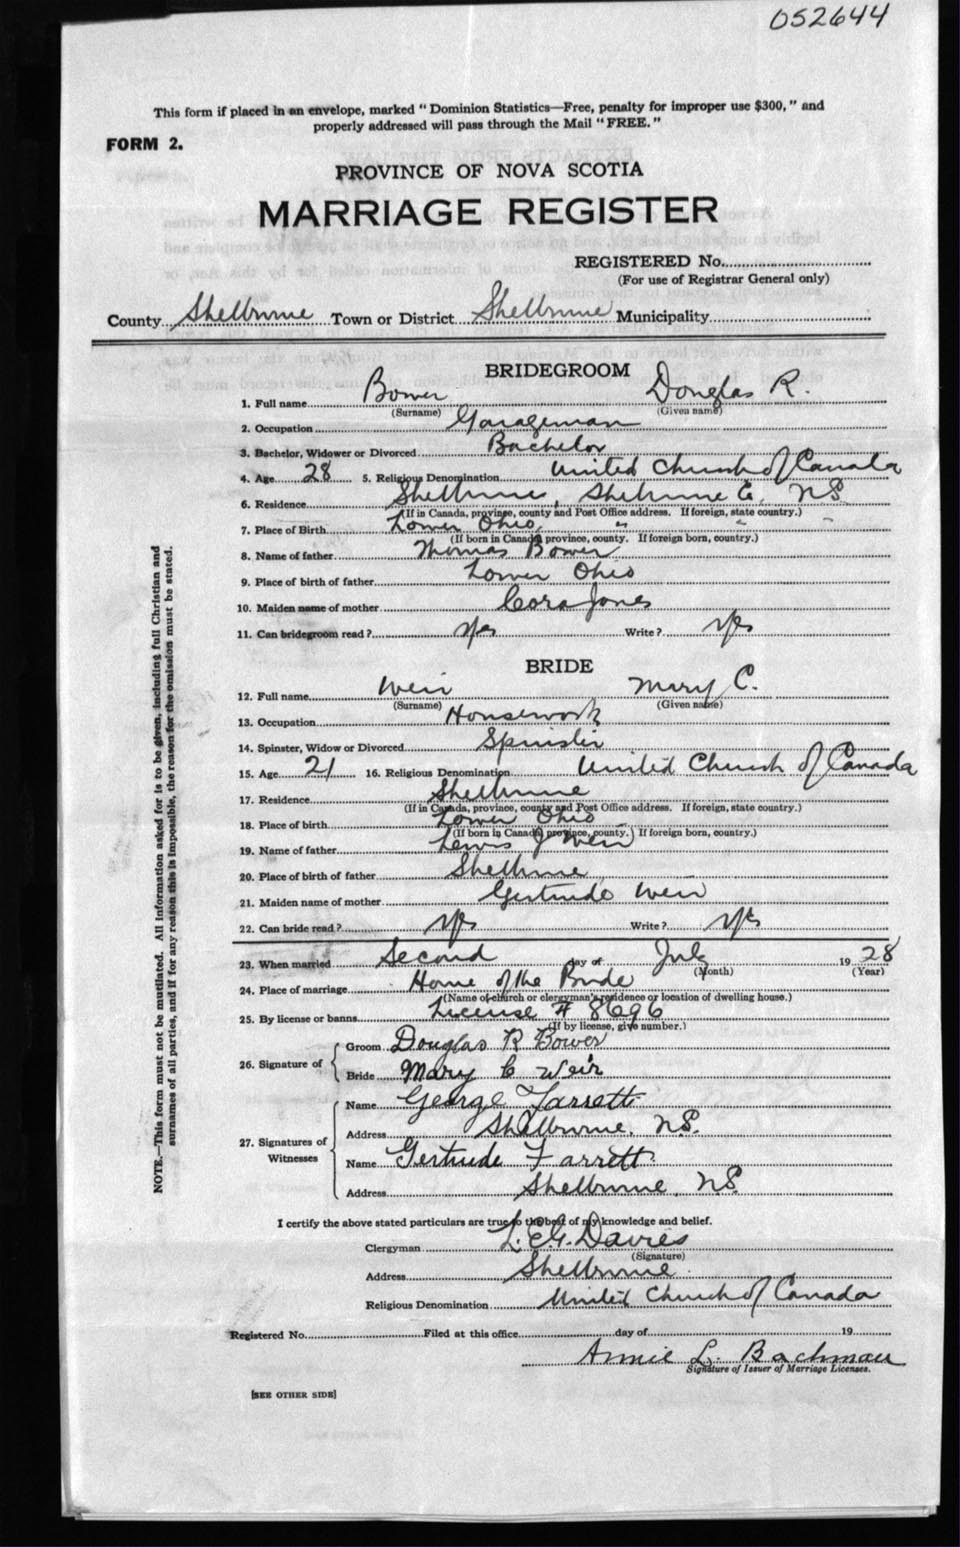 052644
This form if placed in an envelope, marked "Dominion Statistics—Free, penalty for improper use $300," and
properly addressed will pass through the Mail "FREE."
FORM 2.
PROVINCE OF NOVA SCOTIA
MARRIAGE REGISTER
REGISTERED No.
(For use of Registrar General only)
County Shelburne Town or District Shelburne Municipality
BRIDEGROOM
1. Full name Bower Douglas R.
(Surname) (Given name)
2. Occupation Garageman
3. Bachelor, Widower or Divorced Bachelor
4. Age 28 5. Religious Denomination United Church of Canada
6. Residence Shelburne, Shelburne Co, NS
(If in Canada, province, county and Post Office address. If foreign, state country.)
7. Place of Birth Lower Ohio " " "
(If born in Canada province, county. If foreign born, country.)
8. Name of father Thomas Bower
9. Place of birth of father Lower Ohio
10. Maiden name of mother Cora Jones
11. Can bridegroom read? Yes Write? Yes
BRIDE
12. Full name Weir Mary C.
(Surname) (Given name)
13. Occupation Housework
14. Spinster, Widow or Divorced Spinster
15. Age 21 16. Religious Denomination United Church of Canada
17. Residence Shelburne
(If in Canada, province, county and Post Office address. If foreign, state country.)
18. Place of birth Lower Ohio
(If born in Canada, province, county.) If foreign born, country.)
19. Name of father Lewis J Weir
20. Place of birth of father Shelburne
21. Maiden name of mother Gertrude Weir
22. Can bride read? Yes Write? Yes
23. When married Second day of July 19 28
(Month) (Year)
24. Place of marriage Home of the Bride
(Name of church or clergyman's residence or location of dwelling house.)
25. By license or banns License # 8696
(If by license, give number.)
26. Signature of Groom Douglas R Bower
Bride Mary C Weir
27. Signatures of Witnesses Name George Farrett
Address Shelburne, N.S.
Name Gertrude Farrett
Address Shelburne, N.S.
I certify the above stated particulars are true to the best of my knowledge and belief.
Clergyman L. E. G. Davies
(Signature)
Address Shelburne
Religious Denomination United Church of Canada
Registered No. Filed at this office day of 19
Annie L. Bachman
Signature of Issuer of Marriage Licenses.
[SEE OTHER SIDE]
NOTE.—This form must not be mutilated. All information asked for is to be given, including full Christian and
surnames of all parties, and if for any reason this is impossible, the reason for the omission must be stated.